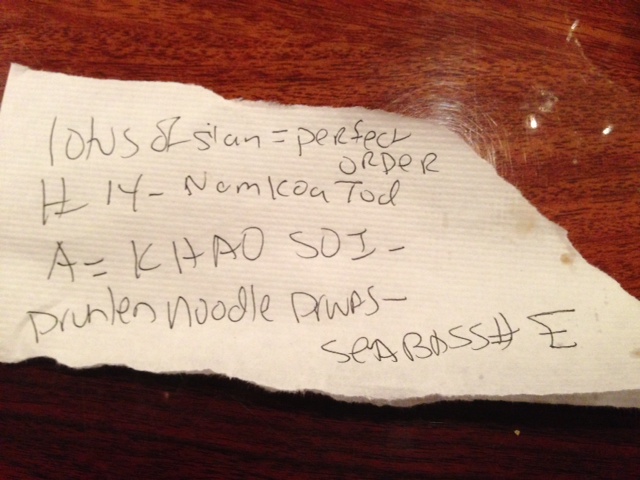 lotus of sian = perfect
ORDER
# 14 - Nam Koa Tod
A = KHAO SOI -
Drunken Noodle -
SEABASS # E